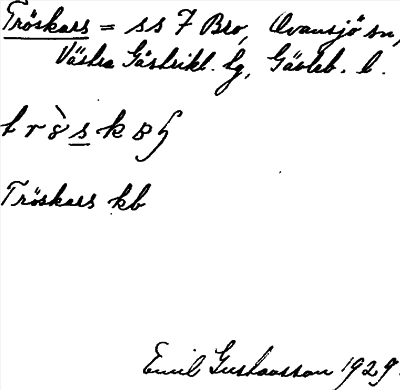 Tröskars = ss 7 Bro, Ovansjö sn,
Västra Gästrikl. tg, Gävleb. l.
Tröskars kb
Emil Gustavsson 1929.